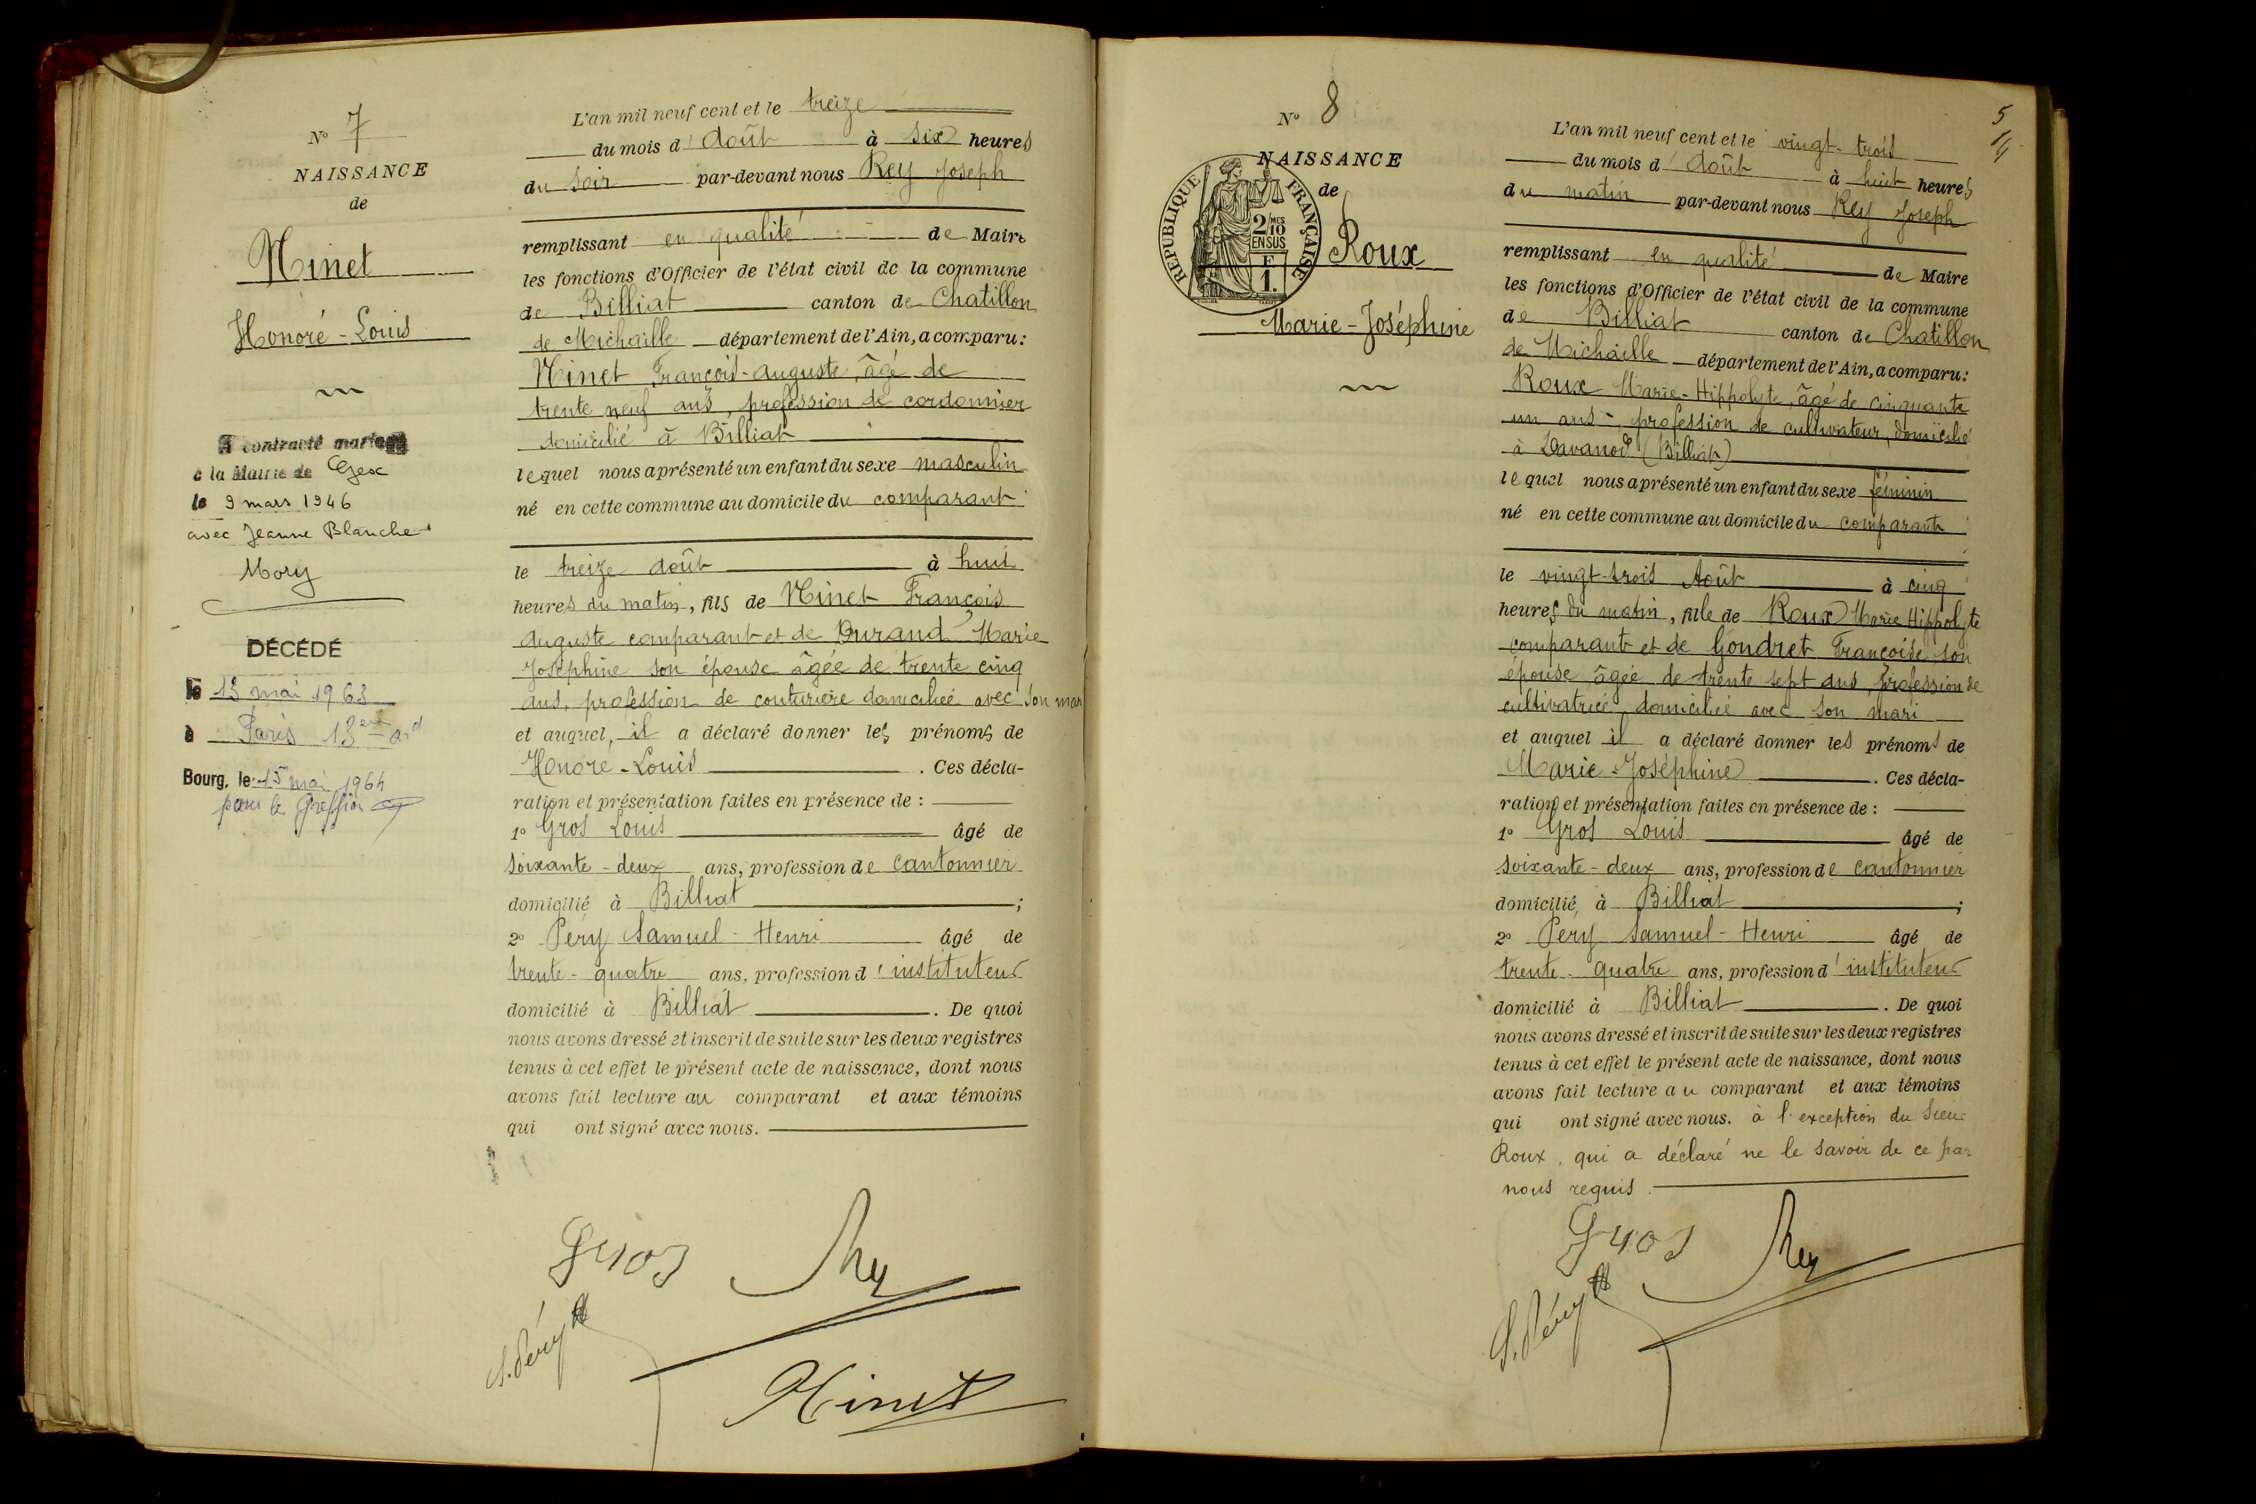 N° 7
NAISSANCE
de
Ninet
Honoré-Louis
A contracté mariage
à la Mairie de Gex
le 9 mars 1946
avec Jeanne Blanche
Mory
DÉCÉDÉ
le 13 mai 1963
à Paris 13ème ard
Bourg, le 15 mai 1964
pour le Greffier
L'an mil neuf cent et le treize
du mois d'Août à six heures
du soir par-devant nous Rey Joseph
remplissant en qualité de Maire
les fonctions d'Officier de l'état civil de la commune
de Billiat canton de Chatillon
de Michaille département de l'Ain, a comparu:
Ninet François-Auguste, âgé de
trente neuf ans, profession de cordonnier
domicilié à Billiat
lequel nous a présenté un enfant du sexe masculin
né en cette commune au domicile du comparant
le treize Août à huit
heures du matin, fils de Ninet François
Auguste comparant et de Durand Marie
Joséphine son épouse âgée de trente cinq
ans, profession de couturière domiciliée avec son mari
et auquel, il a déclaré donner les prénoms de
Honoré-Louis. Ces décla-
ration et présentation faites en présence de :
1° Gros Louis âgé de
soixante-deux ans, profession de cantonnier
domicilié à Billiat ;
2° Pery Samuel-Henri âgé de
trente-quatre ans, profession d'instituteur
domicilié à Billiat. De quoi
nous avons dressé et inscrit de suite sur les deux registres
tenus à cet effet le présent acte de naissance, dont nous
avons fait lecture au comparant et aux témoins
qui ont signé avec nous.
Gros Rey
S. Péry
Ninet
5
N° 8
NAISSANCE
de
REPUBLIQUE FRANÇAISE
2/10MES
EN SUS
F
1.
Roux
Marie-Joséphine
L'an mil neuf cent et le vingt-trois
du mois d'Août à huit heures
du matin par-devant nous Rey Joseph
remplissant en qualité de Maire
les fonctions d'Officier de l'état civil de la commune
de Billiat canton de Chatillon
de Michaille département de l'Ain, a comparu:
Roux Marie-Hippolyte, âgé de cinquante
un ans, profession de cultivateur, domicilié
à Davanod (Billiat)
lequel nous a présenté un enfant du sexe féminin
né en cette commune au domicile du comparant
le vingt-trois Août à cinq
heures du matin, fille de Roux Marie Hippolyte
comparant et de Gondret Françoise son
épouse âgée de trente sept ans, profession de
cultivatrice domiciliée avec son mari
et auquel il a déclaré donner les prénoms de
Marie-Joséphine. Ces décla-
ration et présentation faites en présence de :
1° Gros Louis âgé de
soixante-deux ans, profession de cantonnier
domicilié à Billiat ;
2° Pery Samuel-Henri âgé de
trente-quatre ans, profession d'instituteur
domicilié à Billiat. De quoi
nous avons dressé et inscrit de suite sur les deux registres
tenus à cet effet le présent acte de naissance, dont nous
avons fait lecture au comparant et aux témoins
qui ont signé avec nous. à l'exception du sieur
Roux, qui a déclaré ne le savoir de ce par
nous requis.
Gros Rey
S. Péry